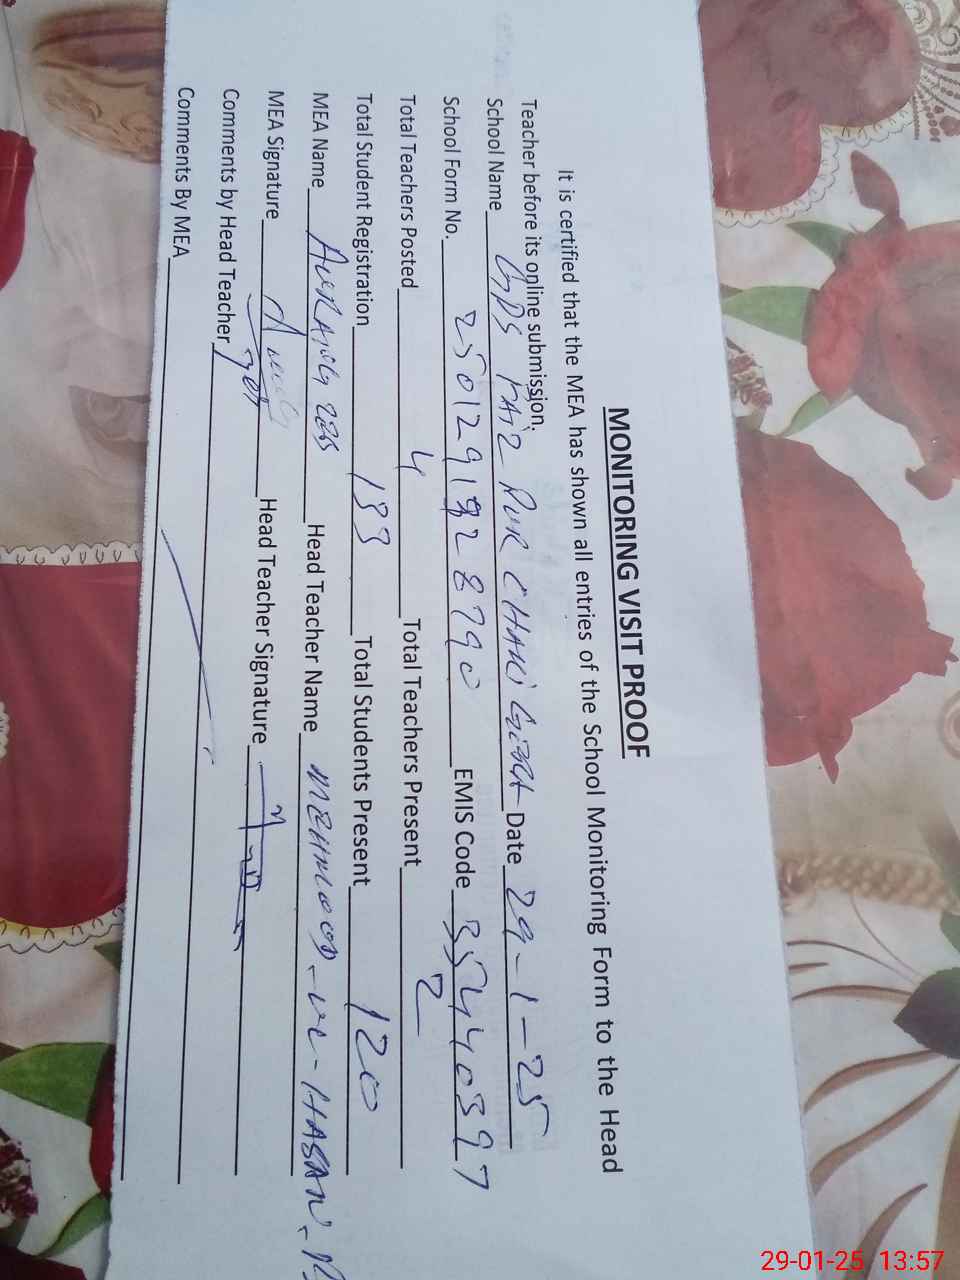 MONITORING VISIT PROOF
It is certified that the MEA has shown all entries of the School Monitoring Form to the Head
Teacher before its online submission.
School Name GPS FAIZ PUR CHAK Date 29-1-25
School Form No. EMIS Code 35440397
Total Teachers Posted 4 Total Teachers Present 2
Total Student Registration 133 Total Students Present 120
MEA Name AURANGZEB Head Teacher Name MEHMOOD-UL-HASAN
MEA Signature Head Teacher Signature
Comments by Head Teacher
Comments By MEA
29-01-25 13:57